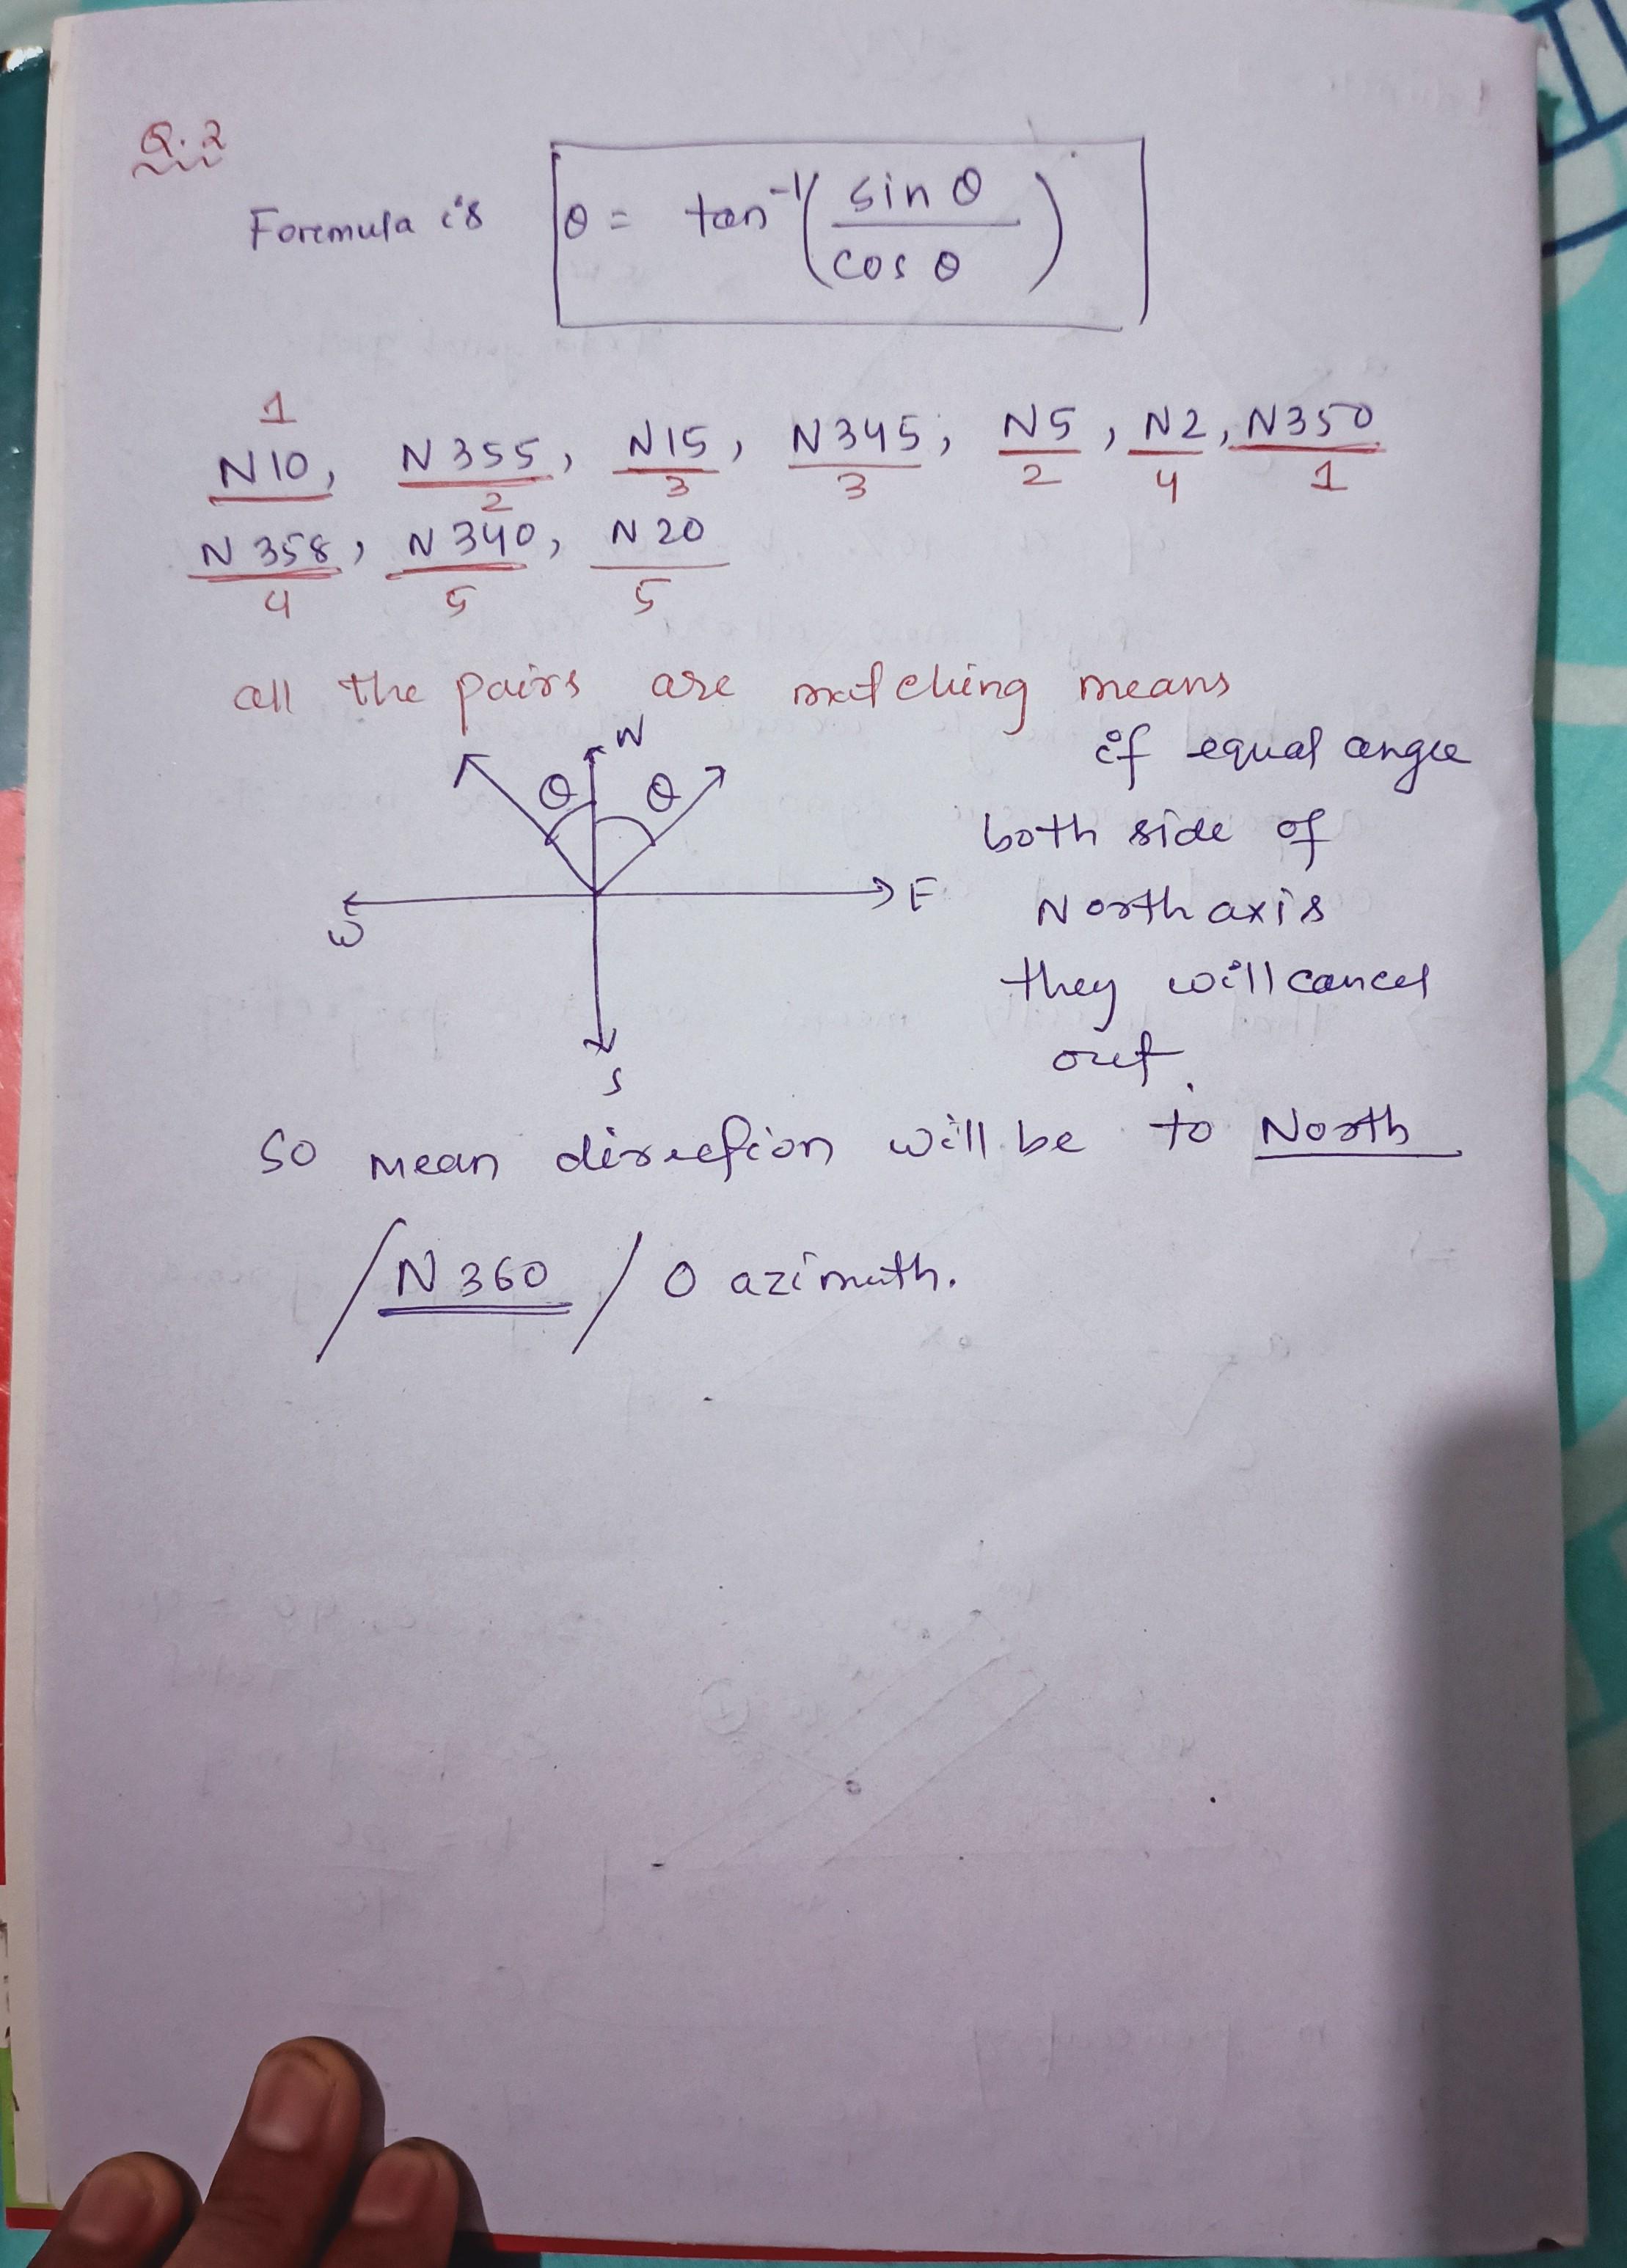 Q.2
Formula is θ = tan⁻¹(sin θ / cos θ)
1
N10, N355, N15, N345, N5, N2, N350
2 3 3 2 4 1
N358, N340, N20
4 5 5
all the pairs are matching means
N
θ θ
if equal angle
both side of
W E
North axis
they will cancel
out.
S
So mean direction will be to North
/N360 / 0 azimuth.